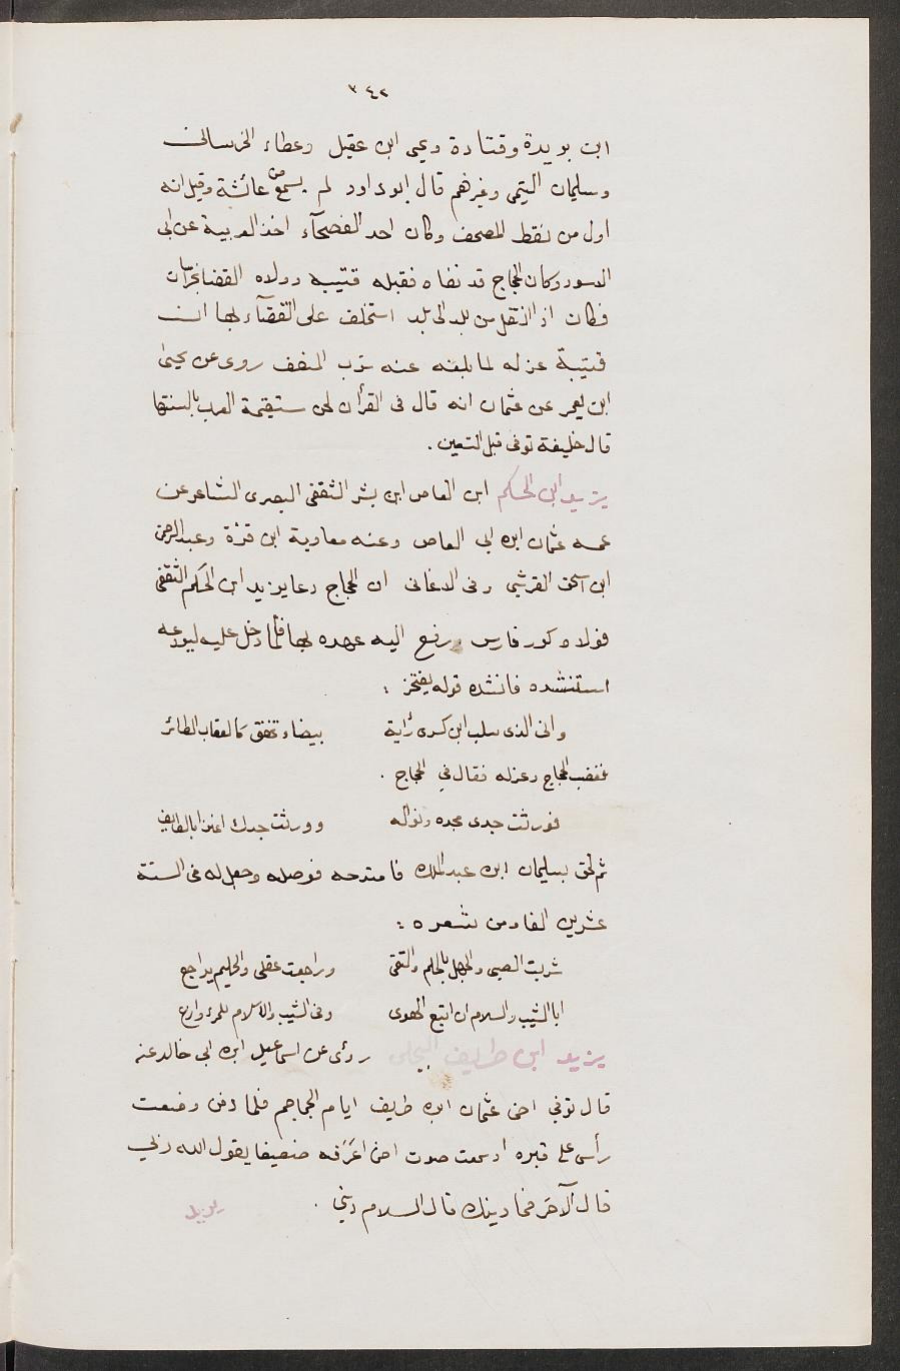 ٣٤٢
ابن بويدة وقتادة ويحى ابن عقيل وعطاء الخرسانى
وسليمان التيمى وغيرهم قال ابو داود لم يسمع من عائشة وقيل انه
اول من نقط المصحف وكان احد الفصحآء اخذ العربية عن ابى
الاسود وكان الحجاج قد نفاه فقبله قتيبه وولاه القضا بخرسان
فكان اذا انتقل من بلد الى بلد استخلف على القضآء بها ان
قتيبة عزله لما بلغه عنه شرب المنصف روى عن يحيى
ابن يعمر عن عثمان انه قال فى القرأن لحن ستقيمة العرب بالسنتها
قال خليفة توفى قبل التسعين .
يزيد ابن الحكم ابن العاص ابن بشر الثقفى البصرى الشاعر عن
عمه عثمان ابن ابى العاص وعنه معاوية ابن قرة وعبد الرحمن
ابن اسحق القرشى وفى الاغانى ان الحجاج دعا يزيد ابن الحكم الثقفى
فولاه كور فارس ورفع اليه عهده بها فلما دخل عليه ليودعه
استنشده فانشده قوله يفتخر :
وابى الذى سلب ابن كسرى رأية بيضاء تخفق كالعقاب الطائر
فغضب الحجاج وعزله فقال فى الحجاج .
فورثت جدى مجده ونواله وورثت جدك اعنزا بالطايف
ثم لحق بسليمان ابن عبد الملك فامتدحه فوصله وجعل له فى السنة
عشرين الفا ومن شعره :
شربت الصبى والجهل بالحلم والتقى وراجعت عقلى والحليم يراجع
ابا الشيب والاسلام ان اتبع الهوى وفى الشيب والاسلام للمرء وازع
يزيد ابن طريف البجلى روى عن اسماعيل ابن ابى خالد عنه
قال توفى اخى عثمان ابن طريف ايام الجماجم فلما دفن وضعت
رأسى على قبره اذ سمعت صوت اخى اعرفه ضعيفا يقول الله ربى
قال الآخر فما دينك قال الاسلام دينى .
يزيد